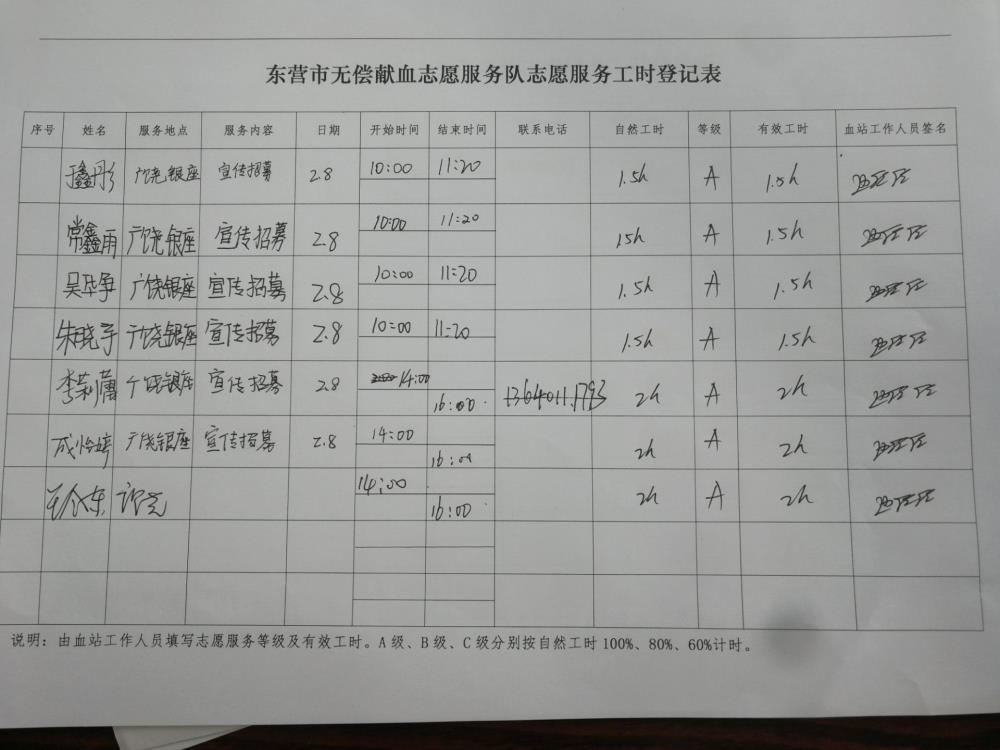 东营市无偿献血志愿服务队志愿服务工时登记表
序号 姓名 服务地点 服务内容 日期 开始时间 结束时间 联系电话 自然工时 等级 有效工时 血站工作人员签名
于鑫彤 广饶银座 宣传招募 2.8 10:00 11:20 1.5h A 1.5h
常鑫雨 广饶银座 宣传招募 2.8 10:00 11:20 15h A 1.5h
吴华争 广饶银座 宣传招募 2.8 10:00 11:20 1.5h A 1.5h
朱晓宇 广饶银座 宣传招募 2.8 10:00 11:20 1.5h A 1.5h
李莉蒲 广饶银座 宣传招募 2.8 14:00 16:00 2h A 2h
成怡婷 广饶银座 宣传招募 2.8 14:00 16:00 2h A 2h
14:00 16:00 2h A 2h
说明：由血站工作人员填写志愿服务等级及有效工时。A级、B级、C级分别按自然工时100%、80%、60%计时。